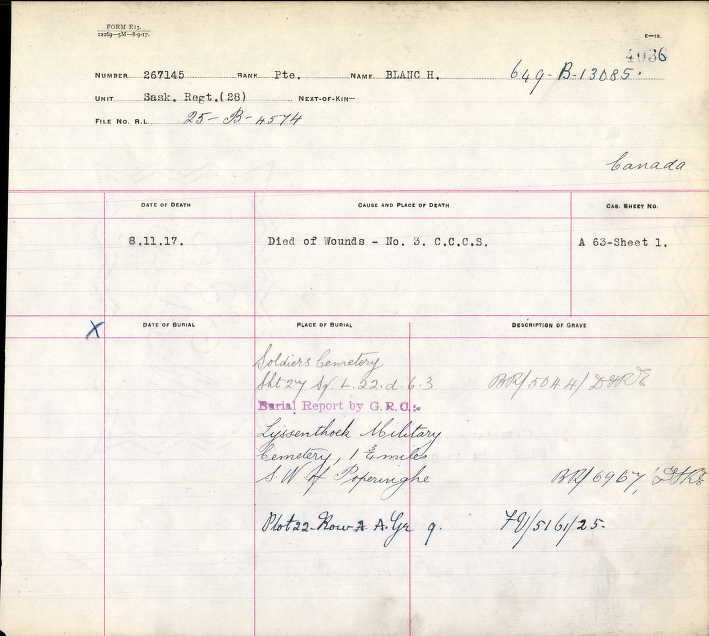 FORM E17.
12269—5M—8-9-17.
E—12.
4036
NUMBER 267145 RANK Pte. NAME BLANC H. 649-B-13085.
UNIT Sask. Regt.(28) NEXT-OF-KIN—
FILE NO. R.L. 25-B-4574
Canada
DATE OF DEATH CAUSE AND PLACE OF DEATH CAS. SHEET NO.
8.11.17. Died of Wounds - No. 3. C.C.C.S. A 63-Sheet 1.
X DATE OF BURIAL PLACE OF BURIAL DESCRIPTION OF GRAVE
Soldiers Cemetery
Sht 27 Sq L.22.d.6.3 BR/5044/
Burial Report by G.R.O:-
Lyssenthoek Military
Cemetery, miles
S.W of Poperinghe BR/6967/
Plot 22- Row A A. Gr 9. /5161/25.